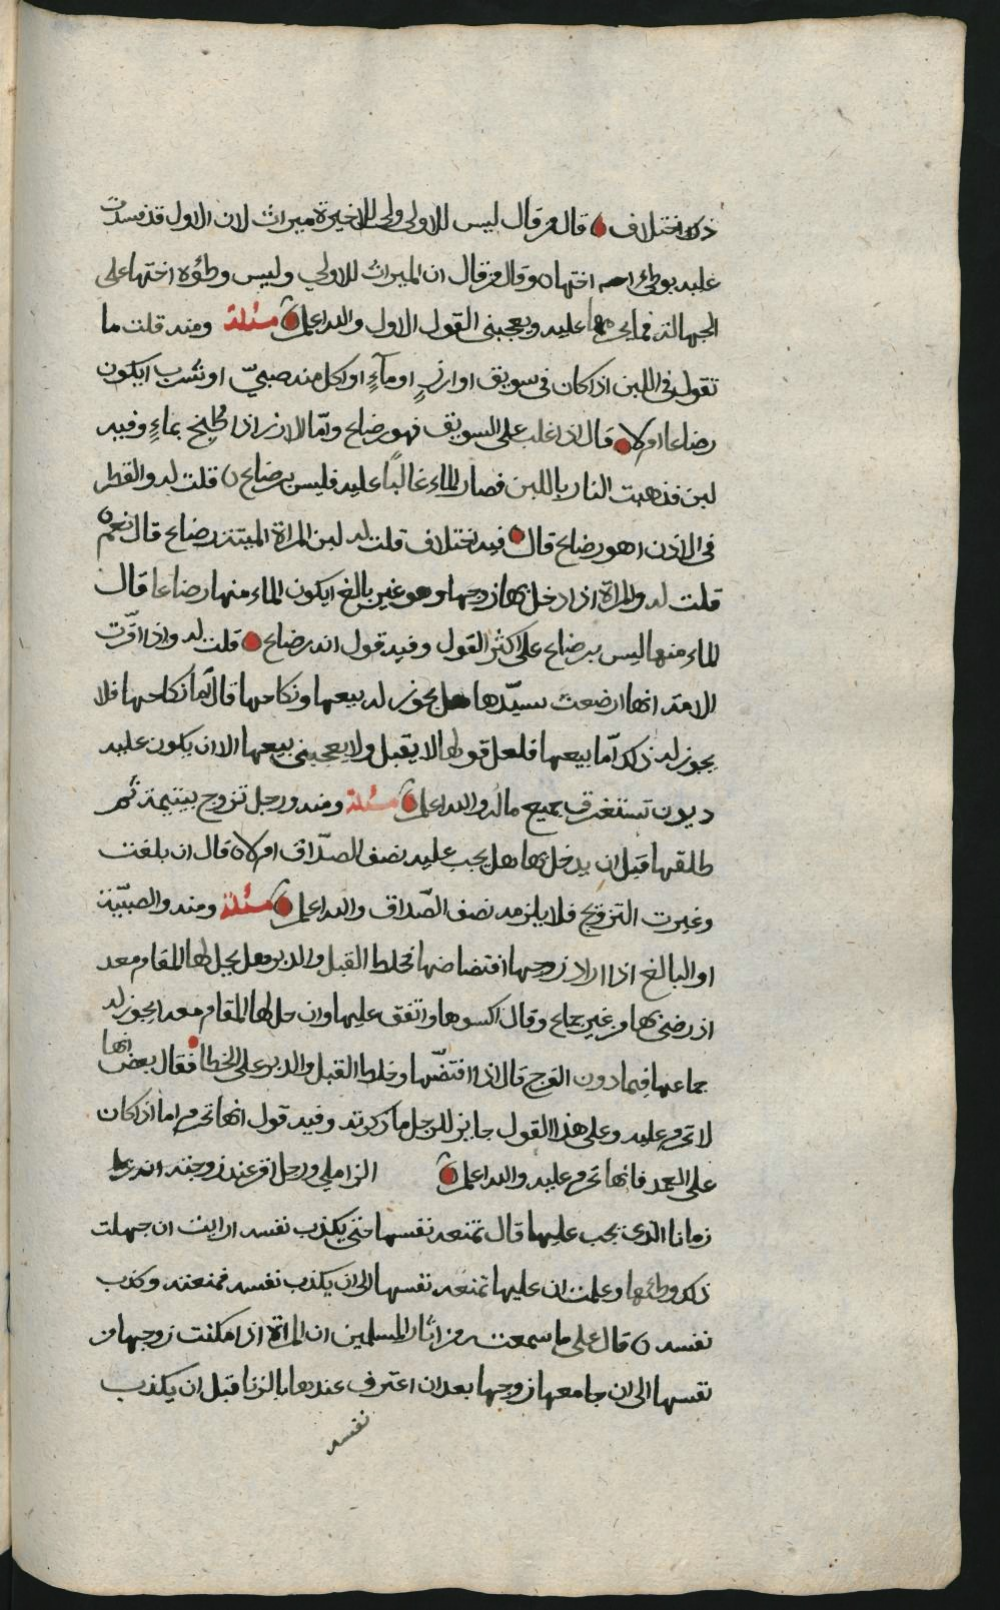 ذلك اختلاف قال من قال ليس للاولى ولا للاخيرة ميراث لان الاول قد فسدت
عليه بوطئ اختها ه وقال من قال ان الميراث للاولى وليس وطؤه اختها على
الجهالة مما يحرمها عليه ويعجبني القول الاول والله اعلم مسئلة ومنه قلت ما
تقول في اللبن اذا كان في سويق او ارز او مآءٍ او اكل منه صبيّ او شرب ايكون
رضاعا ام لا قال اذا غلب على السويق فهو رضاع وامّا الارز اذا طبخ بماءٍ وفيه
لبن فذهبت النار باللبن فصار الماء غالبًا عليه فليس برضاع ن قلت له والقطر
في الاذن اهو رضاع قال فيه اختلاف قلت له لبن المراة الميتة رضاع قال نعم ه
قلت له والمراة اذا دخل بها زوجها وهو غير بالغ ايكون الماء منها رضاعا قال
الماء منها ليس برضاع على اكثر القول وفيه قول انه رضاع قلت له واذا اقرّت
الامة انها ارضعت سيّدها هل يجوز له بيعها ونكاحها قال امّا نكاحها فلا
يجوز له ذلك امّا بيعها فلعل قولها لا يقبل ولا يعجبني بيعها الا ان يكون عليه
ديون تستغرق جميع ماله والله اعلم مسئلة ومنه ورجل تزوج بيتيمة ثم
طلقها قبل ان يدخل بها هل يجب عليه نصف الصدّاق ام لا ه قال ان بلغت
وغيرت التزويج فلا يلزمه نصف الصّداق والله اعلم مسئلة ومنه والصبيّة
او البالغ اذا اراد زوجها افتضاضها فخلط القبل والدبر هل يحل لها المقام معه
اذ رضي بها من غير جماع وقال اكسوها وانفق عليها وان حل لها المقام معه ايجوز له
جماعها فيما دون الفرج قال اذا افتضّها وخلط القبل والدبر على الخطا فقال بعض انها
لا تحرم عليه وعلى هذا القول جايز للرجل ما ذكرته وفيه قول انها تحرم اما اذا كان
على العمد فانها تحرم عليه والله اعلم الزاملي ورجل اقر عند زوجته انه
زنا ما الذي يجب عليها قال تمنعه نفسها حتى يكذب نفسه ارايت ان جهلت
ذلك وطئها وعلمت ان عليها تمنعه نفسها الى ان يكذب نفسه فمنعته وكذب
نفسه ن قال على ما سمعت من اثار المسلمين ان المراة اذا مكنت زوجها من
نفسها الى ان جامعها زوجها بعد ان اعترف عندها بالزنا قبل ان يكذب
نفسه